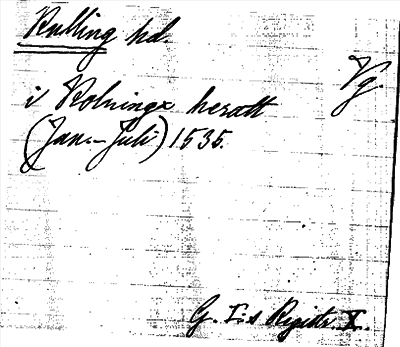 Kulling hd.
Vg.
i Kolninge heratt
(Jan.-Juli) 1535.
G. I:s Registr. X.